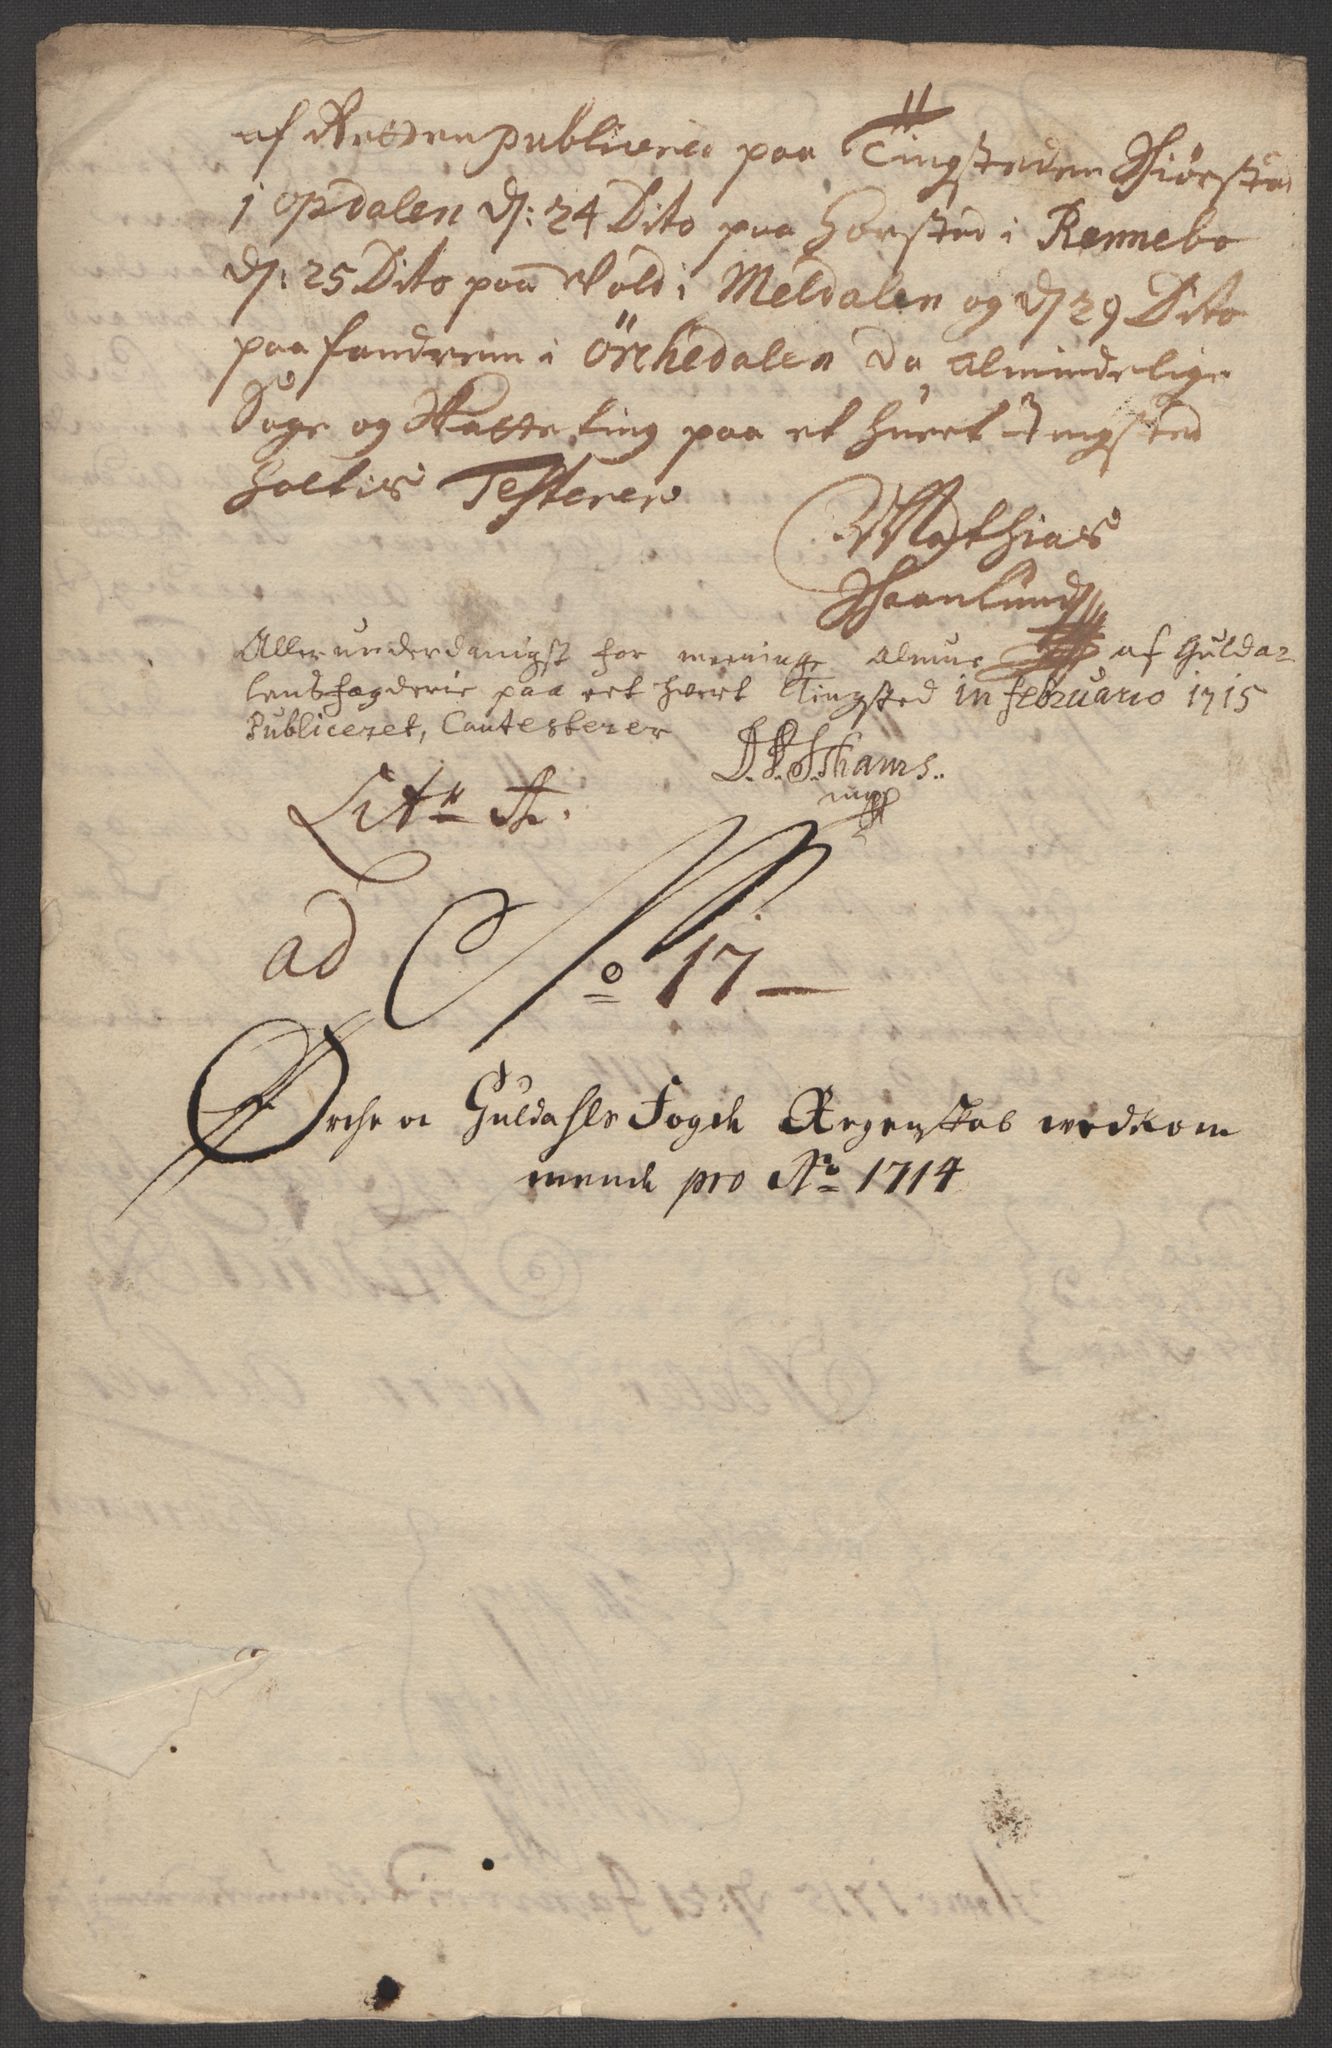 af Retten publicered paa Tingsteden
i Opdalen d: 24 Dito paa Horsted i Rennebo
d: 25 Dito paa Vold i Meldalen og d 29 Dito
paa fandrem i Örchedalen da almindelige
Sage og Skatte ting paa et huert Tingsted
holtes Testerer
Mathias
Allerunderdanigst for meenige Almue af Guldaz
lens fogderie paa eet hvert Tingsted in februario 1715
Publiceret, Contesterer
mpp
Litr
ad No 17
Orche oc Guldahls Fogde Regenskab vedkom
mende pro Ao 1714